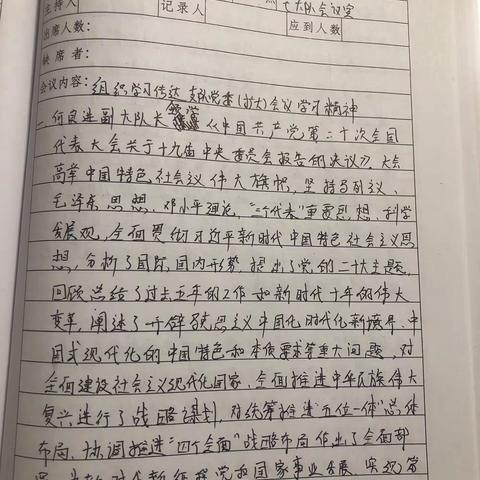 主持人 记录人 大队会议室
应到人数
出席人数：
缺席者：
会议内容：组织学习传达支队党委（扩大）会议学习精神
一、何良进副大队长领学《中国共产党第二十次全国
代表大会关于十九届中央委员会报告的决议》，大会
高举中国特色社会主义伟大旗帜，坚持马列主义、
毛泽东思想、邓小平理论、“三个代表”重要思想、科学
发展观，全面贯彻习近平新时代中国特色社会主义思
想，分析了国际国内形势，提出了党的二十大主题，
回顾总结了过去五年的工作和新时代十年的伟大
变革，阐述了开辟马克思主义中国化时代化新境界、中
国式现代化的中国特色和本质要求等重大问题，对
全面建设社会主义现代化国家、全面推进中华民族伟大
复兴进行了战略谋划，对统筹推进“五位一体”总体
布局、协调推进“四个全面”战略布局作出了全面部
署，为新时代新征程党和国家事业发展、实现第